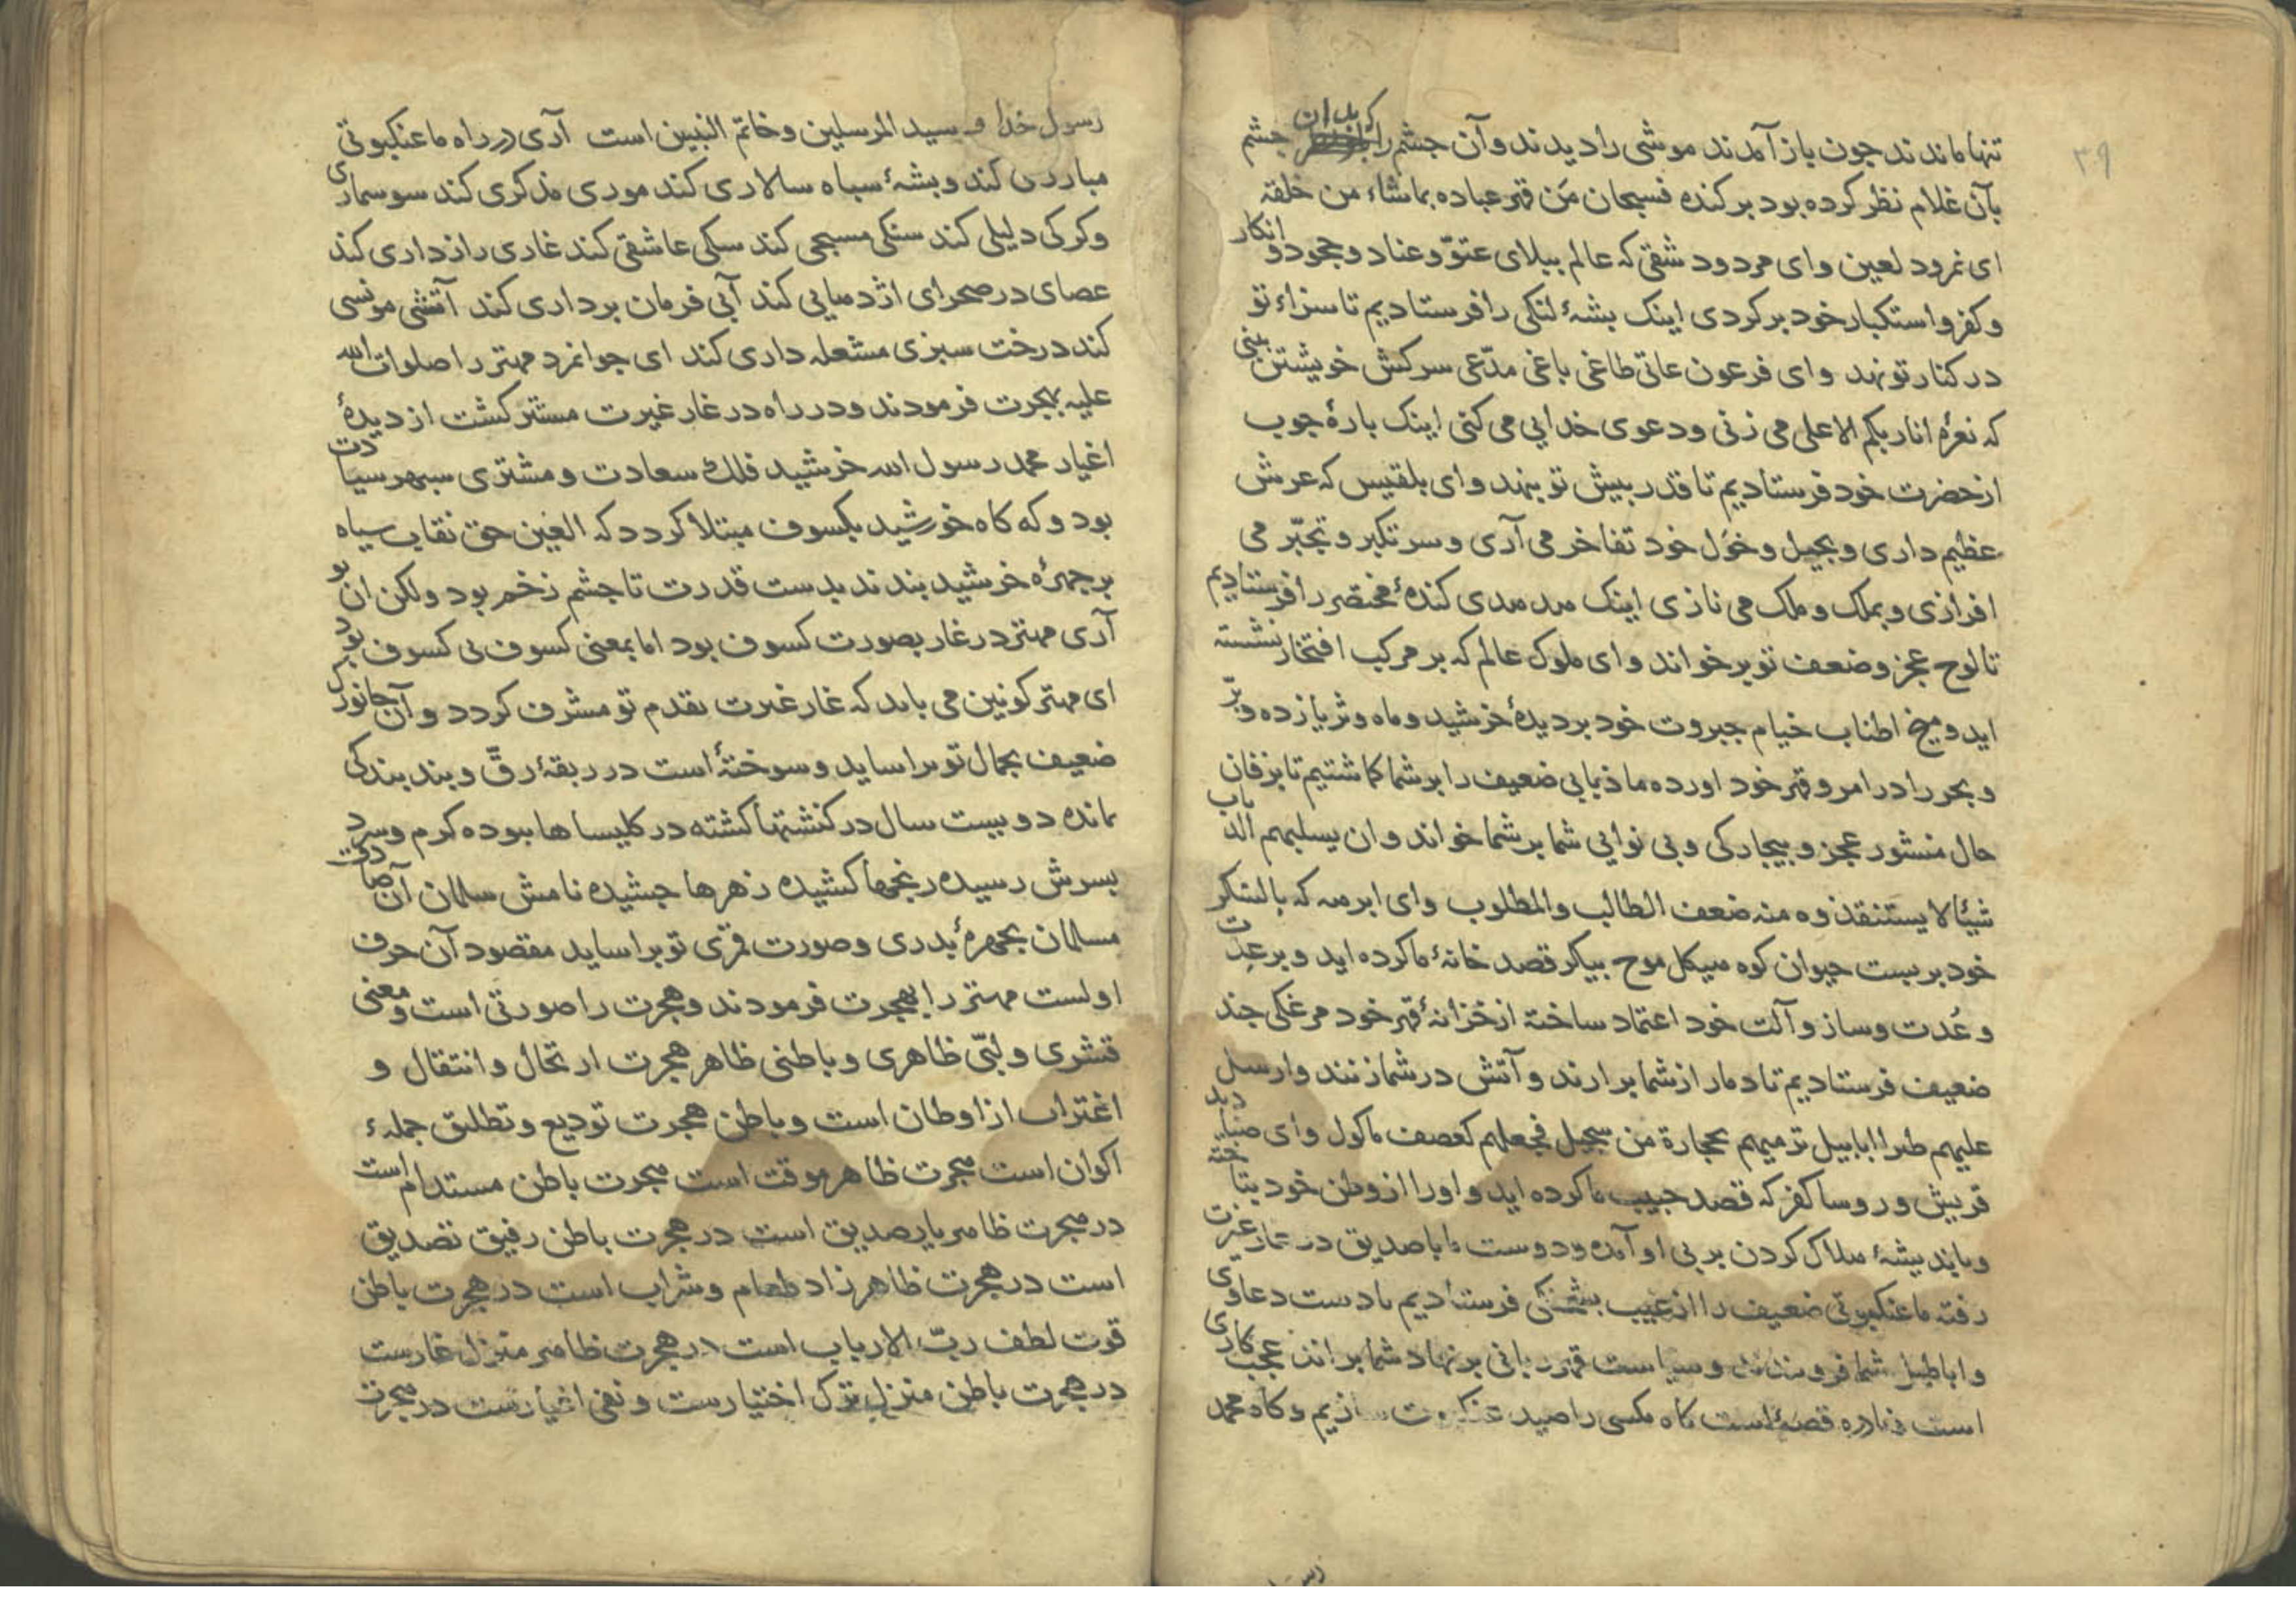 ۳۹
تنها ماندند جون باز آمدند موشی را دیدند و آن جشم را که بدان جشم
بآن غلام نظر کرده بود برکنده فسبحان مَن قهر عباده بماشاء من خلقه
ای نمرود لعین و ای مردود شقی که عالم ببلای عتوّ و عناد و جحود و انکار
و کفر و استکبار خود بر کردی اینک بشهٔ لنکی را فرستادیم تا سزاء تو
در کنار تو نهد و ای فرعون عاتی طاغی باغی مدّعی سرکش خویشتن بینی
که نعرهٔ انا ربکم الاعلی می زنی و دعوی خدایی می کنی اینک بارهٔ جوب
از حضرت خود فرستادیم تا قدر بیش تو بنهد و ای بلقیس که عرش
عظیم داری و بخیل و خَوَل خود تفاخر می آری و سر تکبر و تجبّر می
افرازی و بملک و ملک می نازی اینک هدهدی کندهٔ مختصر را فرستادیم
تا لوح عجز و ضعف تو برخواند و ای ملوک عالم که بر مرکب افتخار نشسته
اید و میخ اطناب خیام جبروت خود بر دیدهٔ خرشید و ماه و ثریا زده و برّ
و بحر را در امر و قهر خود اورده ما ذبابی ضعیف را بر شما کماشتیم تا بزفان
حال منشور عجز و بیجارکی و بی نوایی شما بر شما خواند و ان یسلبهم الذباب
شیئا لا یستنقذوه منه ضعف الطالب والمطلوب و ای ابرهه که با لشکر
خود بر بست حیوان کوه هیکل موج بیکر قصد خانهٔ ما کرده اید و بر عِدّت
و عُدت و ساز و آلت خود اعتماد ساخته از خزانهٔ قهر خود مرغکی جند
ضعیف فرستادیم تا دمار از شما برارند و آتش در شما زنند وارسل
علیهم طیرا ابابیل ترمیهم بحجارة من سجیل فجعلهم کعصف ماکول و ای صنادید
قریش و روسا کفر که قصد حبیب ما کرده اید و او را از وطن خود بتاخته
و باندیشهٔ هلاک کردن بر بی او آمده و دوست ما با صدیق در غار عزت
رفته ما عنکبوتی ضعیف را از غیب بشحنکی فرستادیم تا دست دعاوی
و اباطیل شما فرو بندد و سیاست قهر ربانی بر نهاد شما براند عجب کاری
است و نادره قصهٔ است کاه مکسی را صید عنکبوت سازیم و کاه محمد
رسول خدا و سید المرسلین و خاتم النبیین است آری در راه ما عنکبوتی
مبارزی کند و بشهٔ سباه سالاری کند موری مذکری کند سوسماری
و کرکی دلیلی کند سنکی مسبحی کند سکی عاشقی کند غاری رازداری کند
عصای در صحرای اژدهایی کند آبی فرمان برداری کند آتشی مونسی
کند درخت سبزی مشعله داری کند ای جوانمرد مهتر را صلوات الله
علیه بهجرت فرمودند و در راه در غار غیرت مستتر کشت از دیدهٔ
اغیار محمد رسول الله خرشید فلک سعادت و مشتری سبهر سیادت
بود و که کاه خورشید بکسوف مبتلا کردد که العین حق نقاب سیاه
بر جهرهٔ خرشید بندند بدست قدرت تا جشم زخم بود ولکن ان بو
آری مهتر در غار بصورت کسوف بود اما بمعنی کسوف بی کسوف بود
ای مهتر کونین می باید که غار غیرت بقدم تو مشرف کردد و آن جانورک
ضعیف بجمال تو براساید و سوختهٔ است در ربقهٔ رقّ و بند بندکی
مانده دویست سال در کنشتها کشته در کلیساها بوده کرم و سرد
بسرش رسیده رنجها کشیده زهرها جشیده نامش سلمان آن صادق
مسلمان بجهرهٔ بدری و صورت قمری تو براساید مقصود آن حرف
اولست مهتر را بهجرت فرمودند و هجرت را صورتی است و معنی
قشری و لبّی ظاهری و باطنی ظاهر هجرت ارتحال و انتقال و
اغتراب از اوطان است و باطن هجرت تودیع و تطلیق جملهء
اکوان است هجرت ظاهر موقت است هجرت باطن مستدام است
در هجرت ظاهر یار صدیق است در هجرت باطن رفیق تصدیق
است در هجرت ظاهر زاد طعام و شراب است در هجرت باطن
قوت لطف ربّ الارباب است در هجرت ظاهر منزل غارست
در هجرت باطن منزل ترک اختیارست و نفی اغیارست در هجرت